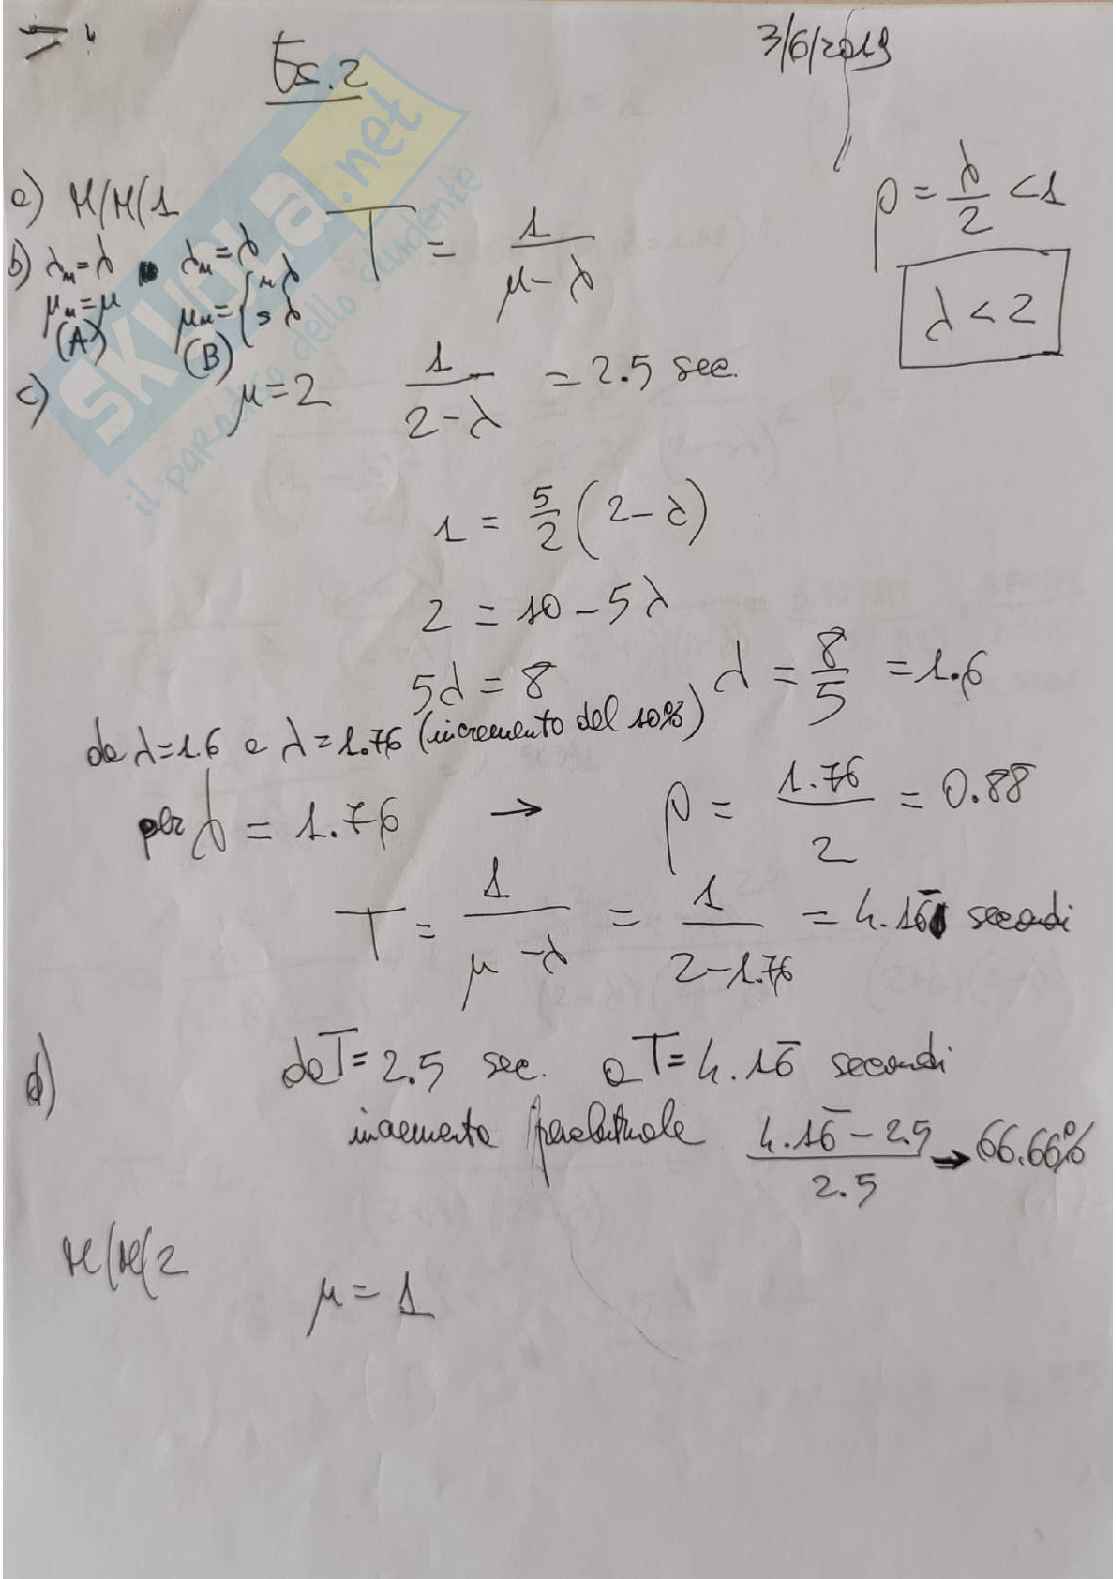 Es.2 3/6/2019
a) M/M/1 T = 1/(μ-λ) ρ = λ/2 < 1
b) λn=λ λn=λ λ < 2
μn=μ μn={
(A) (B)
c) μ=2 1/(2-λ) = 2.5 sec.
1 = 5/2 (2-λ)
2 = 10-5λ
5λ = 8 λ = 8/5 = 1.6
da λ=1.6 a λ=1.76 (incremento del 10%)
per λ = 1.76 → ρ = 1.76/2 = 0.88
T = 1/(μ-λ) = 1/(2-1.76) = 4.16̅ secondi
d) da T=2.5 sec. a T=4.16̅ secondi
incremento percentuale (4.16̅-2.5)/2.5 → 66.66%
M/M/2 μ = 1
SKUOLA.net
il paradiso dello studente